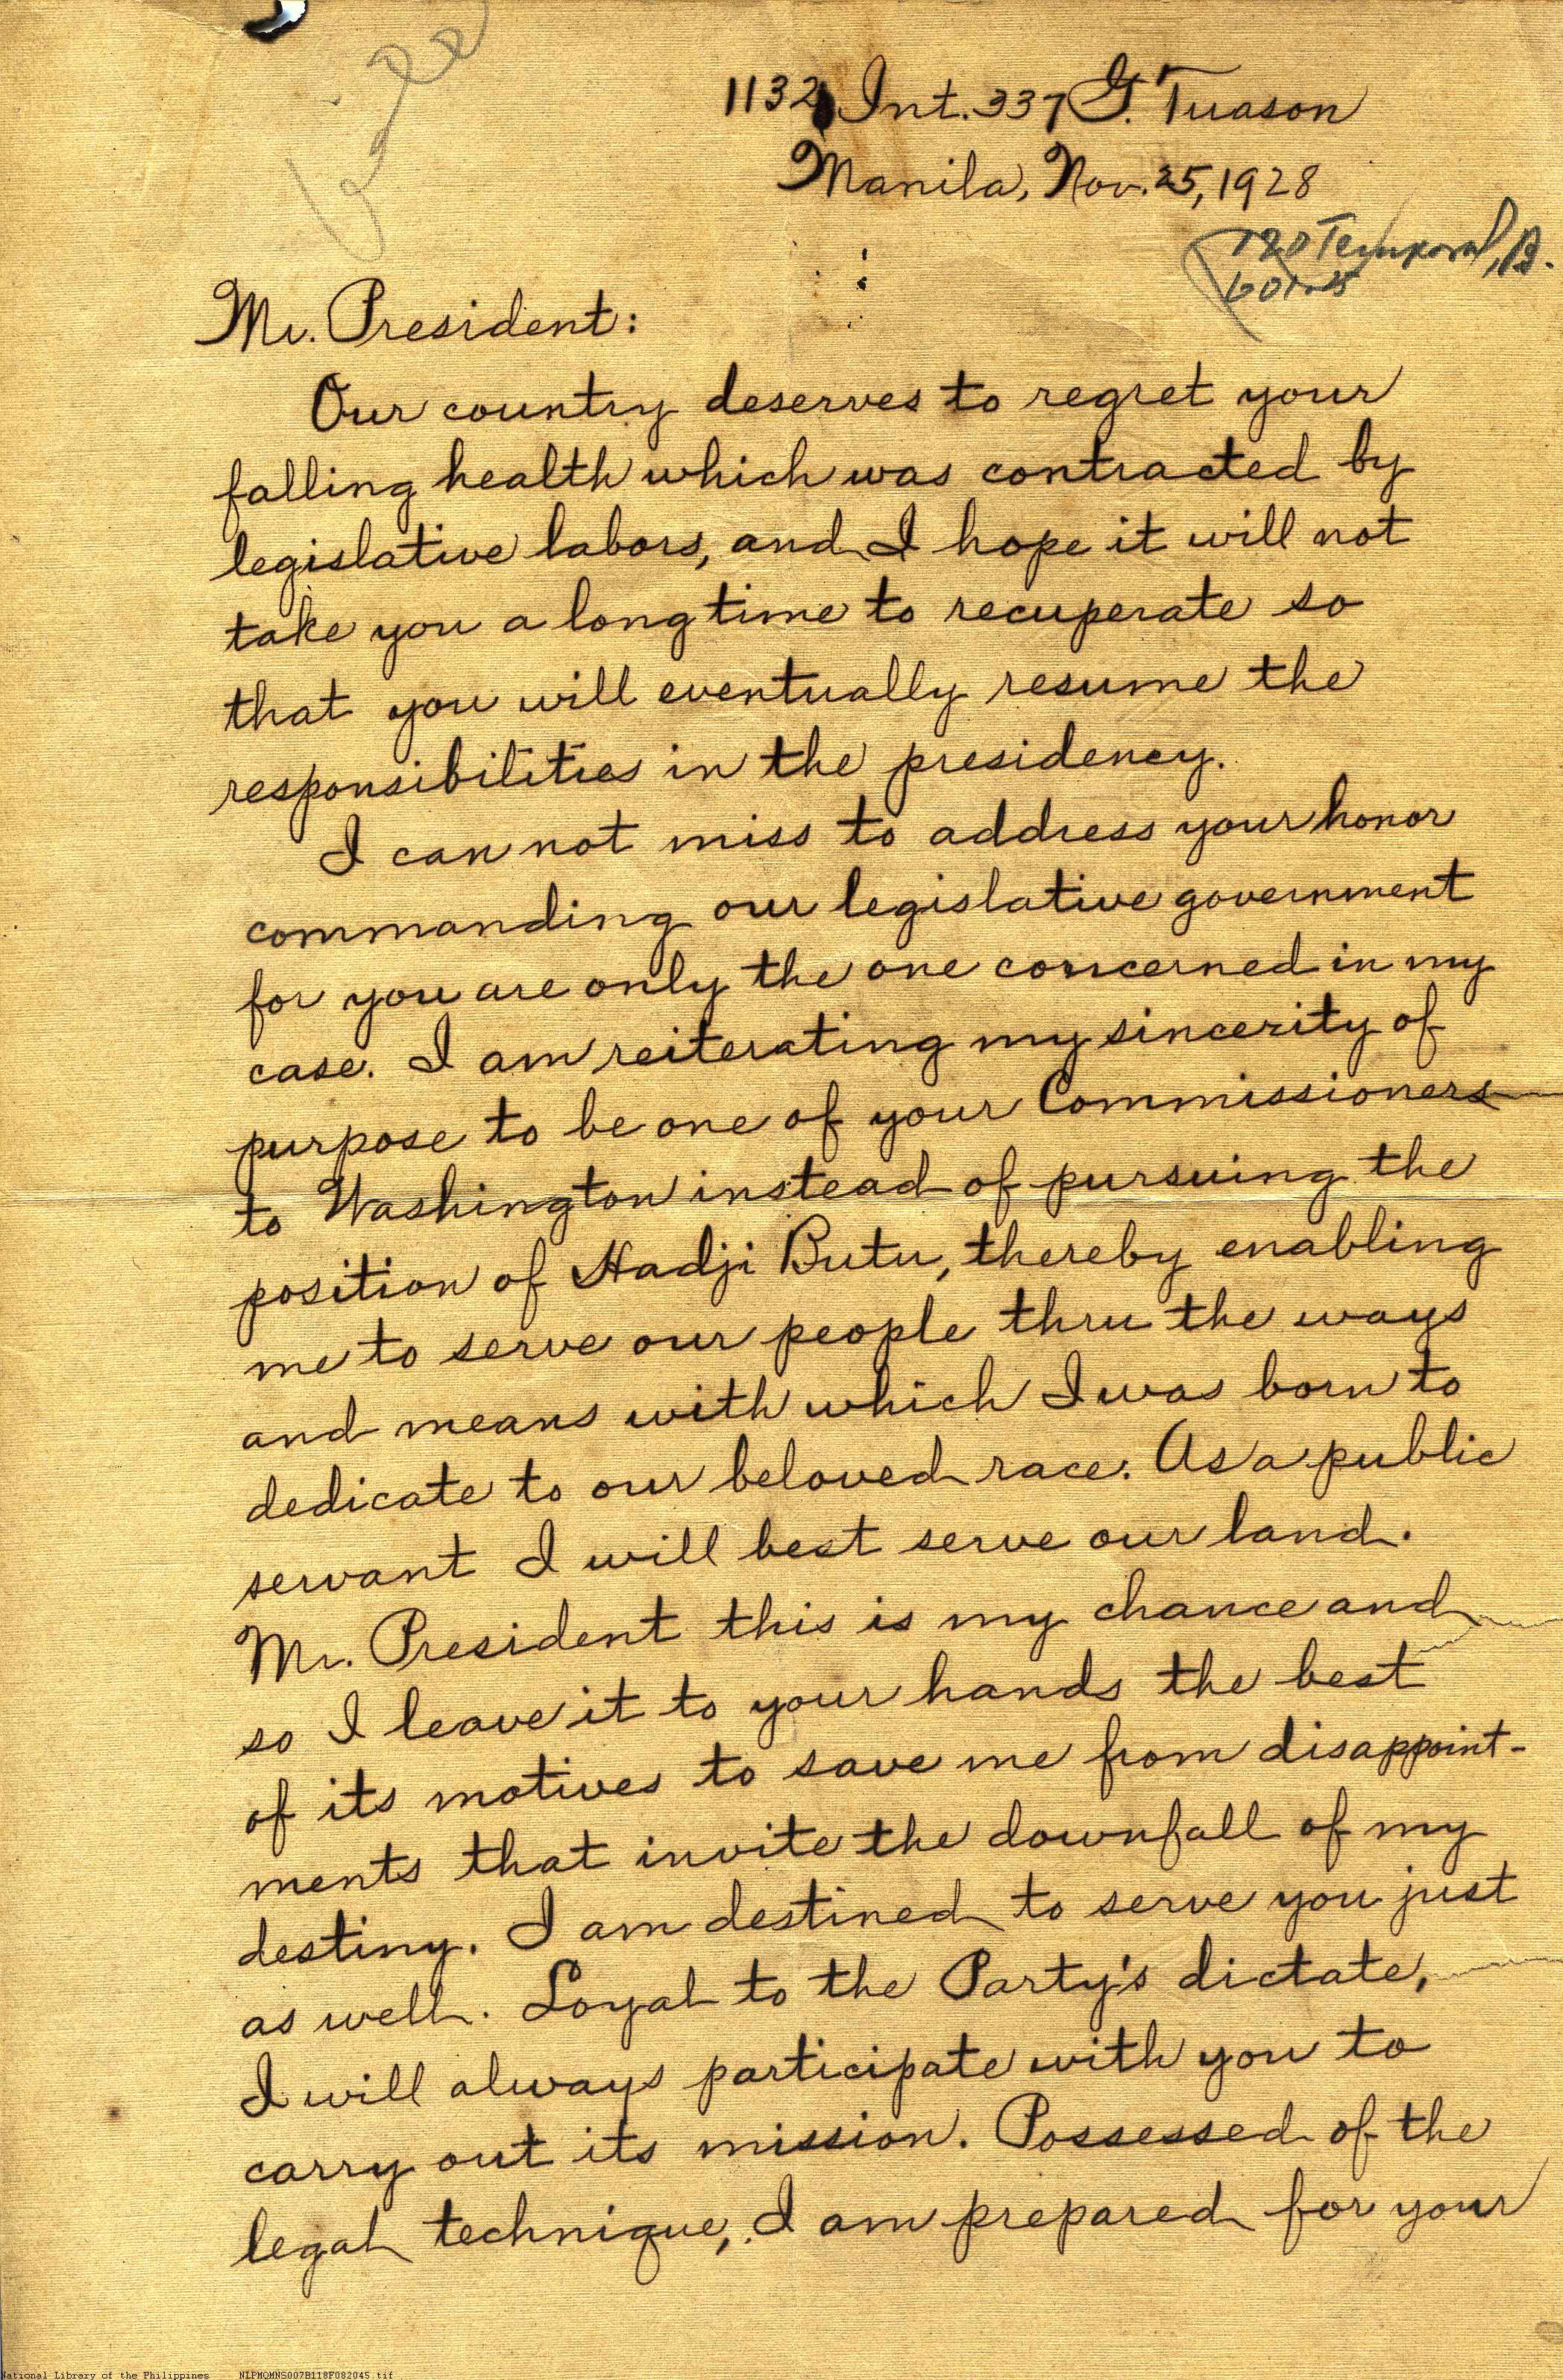 1132 Int. 337 G. Tuason
Manila, Nov. 25, 1928
Mr. President:
Our country deserves to regret your
falling health which was contracted by
legislative labors, and I hope it will not
take you a long time to recuperate so
that you will eventually resume the
responsibilities in the presidency.
I can not miss to address your honor
commanding our legislative government
for you are only the one concerned in my
case. I am reiterating my sincerity of
purpose to be one of your Commissioners
to Washington instead of pursuing the
position of Hadji Butu, thereby enabling
me to serve our people thru the ways
and means with which I was born to
dedicate to our beloved race. As a public
servant I will best serve our land.
Mr. President this is my chance and
so I leave it to your hands the best
of its motives to save me from disappoint-
ments that invite the downfall of my
destiny. I am destined to serve you just
as well. Loyal to the Party's dictate,
I will always participate with you to
carry out its mission. Possessed of the
legal technique, I am prepared for your
National Library of the Philippines NLPMQMNS007B118F082045.tif